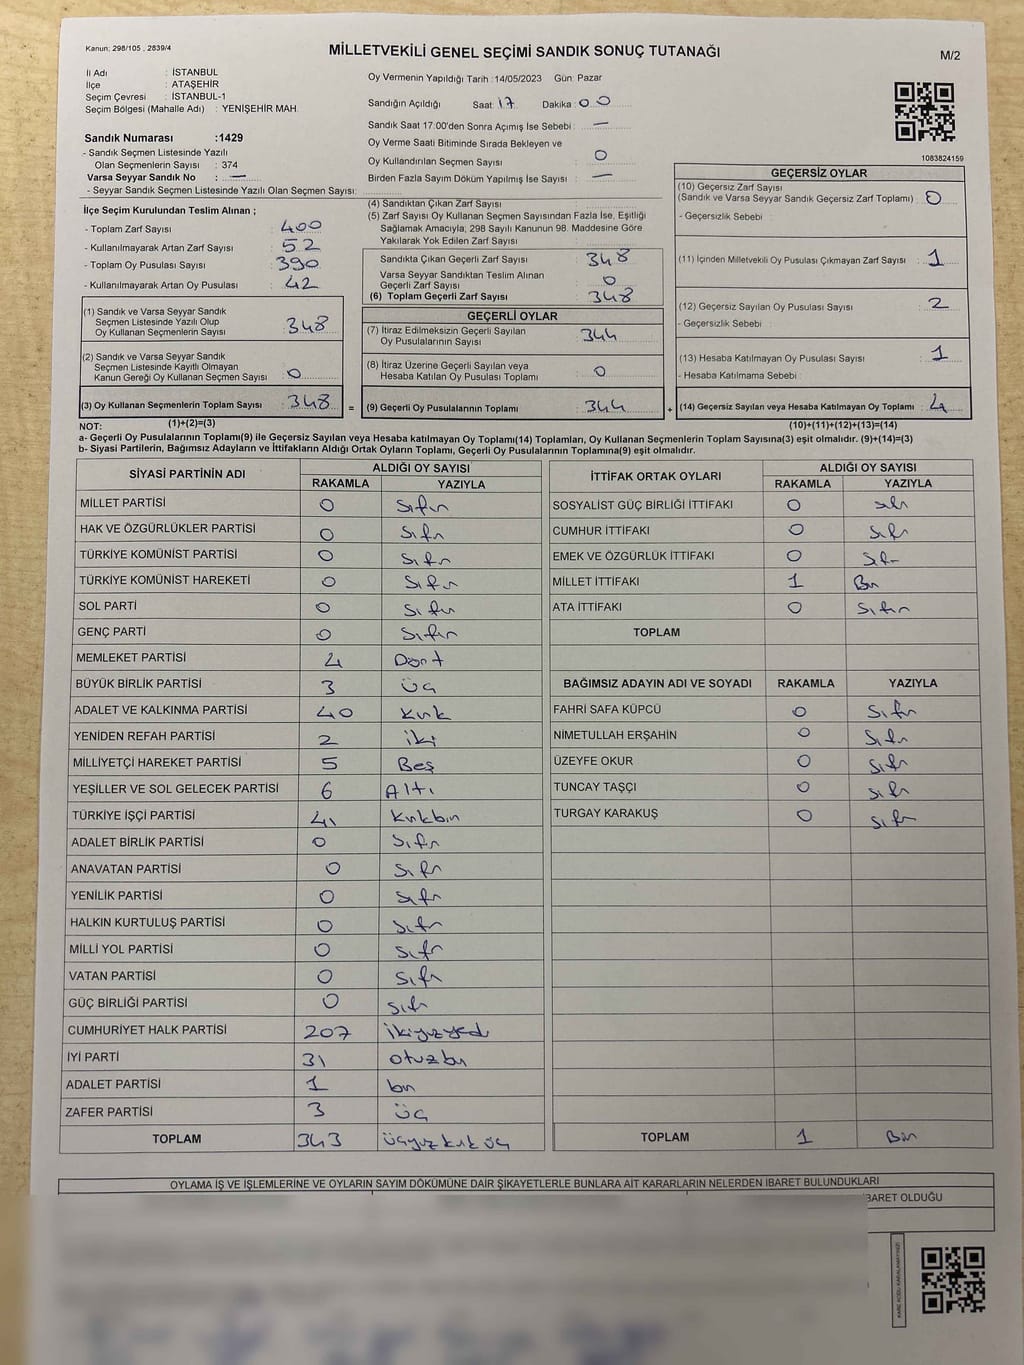 Kanun; 298/105 , 2839/4
MİLLETVEKİLİ GENEL SEÇİMİ SANDIK SONUÇ TUTANAĞI
M/2
İl Adı : İSTANBUL
İlçe : ATAŞEHİR
Seçim Çevresi : İSTANBUL-1
Seçim Bölgesi (Mahalle Adı) : YENİŞEHİR MAH.
Oy Vermenin Yapıldığı Tarih :14/05/2023 Gün: Pazar
Sandığın Açıldığı Saat: 17 Dakika: 00
Sandık Saat 17:00'den Sonra Açımış İse Sebebi : —
Oy Verme Saati Bitiminde Sırada Bekleyen ve
Oy Kullandırılan Seçmen Sayısı : 0
Birden Fazla Sayım Döküm Yapılmış İse Sayısı : —
1083824159
Sandık Numarası :1429
- Sandık Seçmen Listesinde Yazılı
Olan Seçmenlerin Sayısı : 374
Varsa Seyyar Sandık No : —
- Seyyar Sandık Seçmen Listesinde Yazılı Olan Seçmen Sayısı:
İlçe Seçim Kurulundan Teslim Alınan ;
- Toplam Zarf Sayısı : 400
- Kullanılmayarak Artan Zarf Sayısı : 52
- Toplam Oy Pusulası Sayısı : 390
- Kullanılmayarak Artan Oy Pusulası : 42
(1) Sandık ve Varsa Seyyar Sandık
Seçmen Listesinde Yazılı Olup
Oy Kullanan Seçmenlerin Sayısı : 348
(2) Sandık ve Varsa Seyyar Sandık
Seçmen Listesinde Kayıtlı Olmayan
Kanun Gereği Oy Kullanan Seçmen Sayısı : 0
(3) Oy Kullanan Seçmenlerin Toplam Sayısı : 348
(1)+(2)=(3)
(4) Sandıktan Çıkan Zarf Sayısı :
(5) Zarf Sayısı Oy Kullanan Seçmen Sayısından Fazla İse, Eşitliği
Sağlamak Amacıyla; 298 Sayılı Kanunun 98. Maddesine Göre
Yakılarak Yok Edilen Zarf Sayısı :
Sandıkta Çıkan Geçerli Zarf Sayısı : 348
Varsa Seyyar Sandıktan Teslim Alınan
Geçerli Zarf Sayısı : 0
(6) Toplam Geçerli Zarf Sayısı : 348
GEÇERLİ OYLAR
(7) İtiraz Edilmeksizin Geçerli Sayılan
Oy Pusulalarının Sayısı : 344
(8) İtiraz Üzerine Geçerli Sayılan veya
Hesaba Katılan Oy Pusulası Toplamı : 0
= (9) Geçerli Oy Pusulalarının Toplamı : 344
GEÇERSİZ OYLAR
(10) Geçersiz Zarf Sayısı
(Sandık ve Varsa Seyyar Sandık Geçersiz Zarf Toplamı) : 0
- Geçersizlik Sebebi :
(11) İçinden Milletvekili Oy Pusulası Çıkmayan Zarf Sayısı : 1
(12) Geçersiz Sayılan Oy Pusulası Sayısı : 2
- Geçersizlik Sebebi :
(13) Hesaba Katılmayan Oy Pusulası Sayısı : 1
- Hesaba Katılmama Sebebi :
+ (14) Geçersiz Sayılan veya Hesaba Katılmayan Oy Toplamı : 4
(10)+(11)+(12)+(13)=(14)
NOT:
a- Geçerli Oy Pusulalarının Toplamı(9) ile Geçersiz Sayılan veya Hesaba katılmayan Oy Toplamı(14) Toplamları, Oy Kullanan Seçmenlerin Toplam Sayısına(3) eşit olmalıdır. (9)+(14)=(3)
b- Siyasi Partilerin, Bağımsız Adayların ve İttifakların Aldığı Oyların Toplamı, Geçerli Oy Pusulalarının Toplamına(9) eşit olmalıdır.
SİYASİ PARTİNİN ADI ALDIĞI OY SAYISI
RAKAMLA YAZIYLA
MİLLET PARTİSİ 0 Sıfır
HAK VE ÖZGÜRLÜKLER PARTİSİ 0 Sıfır
TÜRKİYE KOMÜNİST PARTİSİ 0 Sıfır
TÜRKİYE KOMÜNİST HAREKETİ 0 Sıfır
SOL PARTİ 0 Sıfır
GENÇ PARTİ 0 Sıfır
MEMLEKET PARTİSİ 4 Dört
BÜYÜK BİRLİK PARTİSİ 3 üç
ADALET VE KALKINMA PARTİSİ 40 kırk
YENİDEN REFAH PARTİSİ 2 iki
MİLLİYETÇİ HAREKET PARTİSİ 5 Beş
YEŞİLLER VE SOL GELECEK PARTİSİ 6 Altı
TÜRKİYE İŞÇİ PARTİSİ 41 kırkbir
ADALET BİRLİK PARTİSİ 0 Sıfır
ANAVATAN PARTİSİ 0 Sıfır
YENİLİK PARTİSİ 0 Sıfır
HALKIN KURTULUŞ PARTİSİ 0 Sıfır
MİLLİ YOL PARTİSİ 0 Sıfır
VATAN PARTİSİ 0 Sıfır
GÜÇ BİRLİĞİ PARTİSİ 0 Sıfır
CUMHURİYET HALK PARTİSİ 207 ikiyüzyedi
İYİ PARTİ 31 otuzbir
ADALET PARTİSİ 1 bir
ZAFER PARTİSİ 3 üç
TOPLAM 343 üçyüzkırküç
İTTİFAK ORTAK OYLARI ALDIĞI OY SAYISI
RAKAMLA YAZIYLA
SOSYALİST GÜÇ BİRLİĞİ İTTİFAKI 0 sıfır
CUMHUR İTTİFAKI 0 Sıfır
EMEK VE ÖZGÜRLÜK İTTİFAKI 0 Sıfır
MİLLET İTTİFAKI 1 Bir
ATA İTTİFAKI 0 Sıfır
TOPLAM
BAĞIMSIZ ADAYIN ADI VE SOYADI RAKAMLA YAZIYLA
FAHRİ SAFA KÜPCÜ 0 Sıfır
NİMETULLAH ERŞAHİN 0 Sıfır
ÜZEYFE OKUR 0 Sıfır
TUNCAY TAŞÇI 0 Sıfır
TURGAY KARAKUŞ 0 Sıfır
TOPLAM 1 Bir
OYLAMA İŞ VE İŞLEMLERİNE VE OYLARIN SAYIM DÖKÜMÜNE DAİR ŞİKAYETLERLE BUNLARA AİT KARARLARIN NELERDEN İBARET BULUNDUKLARI
BARET OLDUĞU
KARE KODU KARALAMAYINIZ!